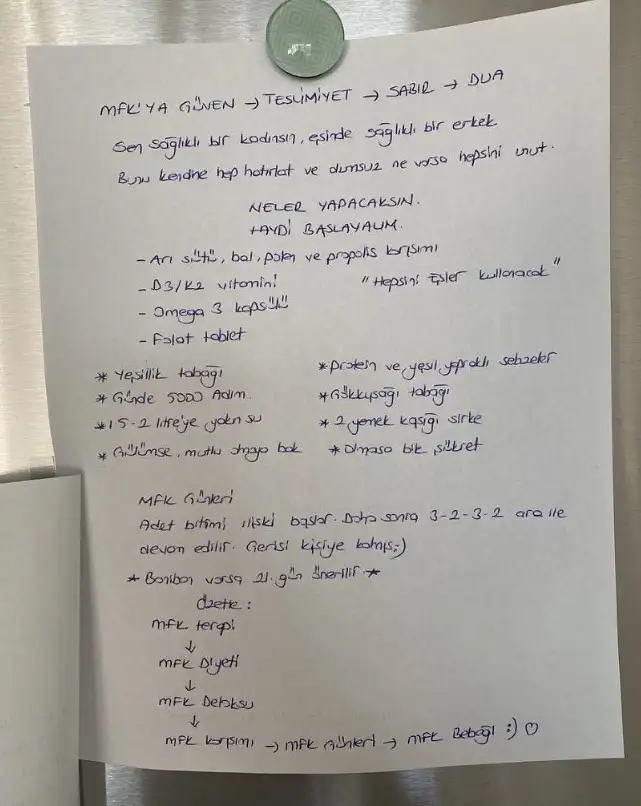 MFK'YA GÜVEN → TESLİMİYET → SABIR → DUA
Sen sağlıklı bir kadınsın, eşinde sağlıklı bir erkek
Bunu kendine hep hatırlat ve olumsuz ne varsa hepsini unut.
NELER YAPACAKSIN.
HAYDİ BAŞLAYALIM.
- Arı sütü, bal, polen ve propolis karışımı
- D3/K2 vitamini "Hepsini Eşler kullanacak"
- Omega 3 kapsülü
- Folat tablet
* Yeşillik tabağı * Protein ve yeşil yapraklı sebzeler
* Günde 5000 Adım * Gökkuşağı tabağı
* 1.5-2 litre'ye yakın su * 2 yemek kaşığı sirke
* Gülümse, mutlu olmaya bak * Olmasa bile şükret
MFK Günleri
Adet bitimi ilişki başlar. Daha sonra 3-2-3-2 ara ile
devam edilir. Gerisi kişiye kalmış :)
* Bonibon varsa 21. gün önerilir. *
Özetle:
MFK terapi
↓
MFK Diyeti
↓
MFK Detoksu
↓
MFK karışımı → MFK Günleri → MFK Bebeği :)